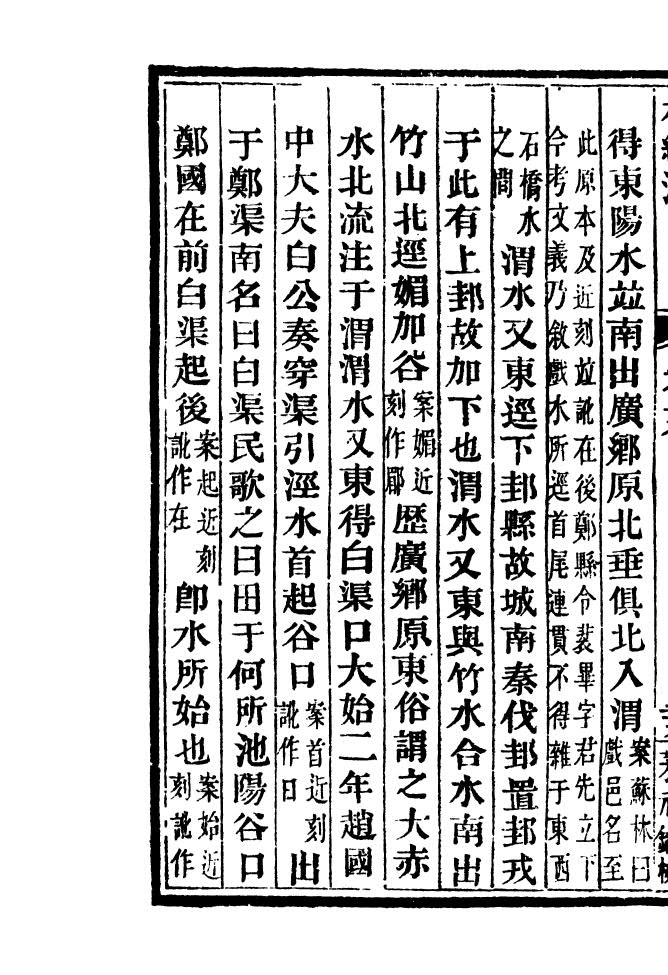 得東陽水竝南出廣鄉原北垂俱北入渭案蘇林曰戲邑名至
此原本及近刻竝訛在後鄭縣令裴畢字君先立下今考文義乃敘戲水所逕首尾連貫不得雜于東西
石橋水之閒渭水又東逕下邽縣故城南秦伐邽置邽戎
于此有上邽故加下也渭水又東與竹水合水南出
竹山北逕媚加谷案媚近刻作郿歷廣鄉原東俗謂之大赤
水北流注于渭渭水又東得白渠口大始二年趙國
中大夫白公奏穿渠引涇水首起谷口案首近刻訛作日出
于鄭渠南名曰白渠民歌之曰田于何所池陽谷口
鄭國在前白渠起後案起近刻訛作在卽水所始也案始近刻訛作